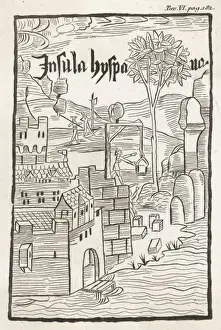 Tav. VI. pag. 182.
Insula hyspana